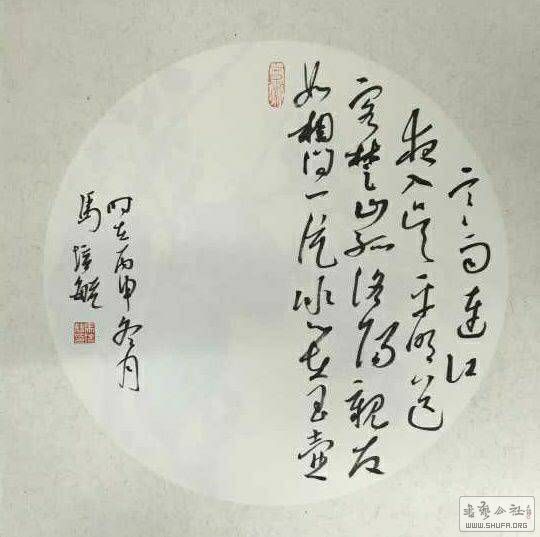 寒雨連江
夜入吳平明送
客楚山孤洛陽親友
如相問一片冰心在玉壺
時在丙申冬月
馬培毓
书艺公社
WWW.SHUFA.ORG